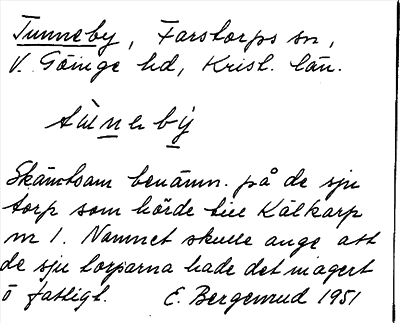 Tunneby, Farstorps sn,
V. Göinge hd, Krist. län.
tùneby̆
Skämtsam benämn. på de sju
torp som hörde till Kälkarp
nr 1. Namnet skulle ange att
de sju torparna hade det magert
o fatligt. E. Bergenrud 1951